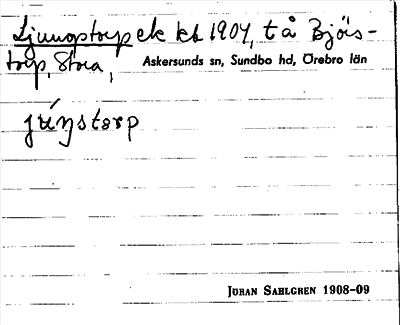 Ljungstorp ek kt 1904, t å Björs-
torp, Stora, Askersunds sn, Sundbo hd, Örebro län
júŋstorp
JÖRAN SAHLGREN 1908-09